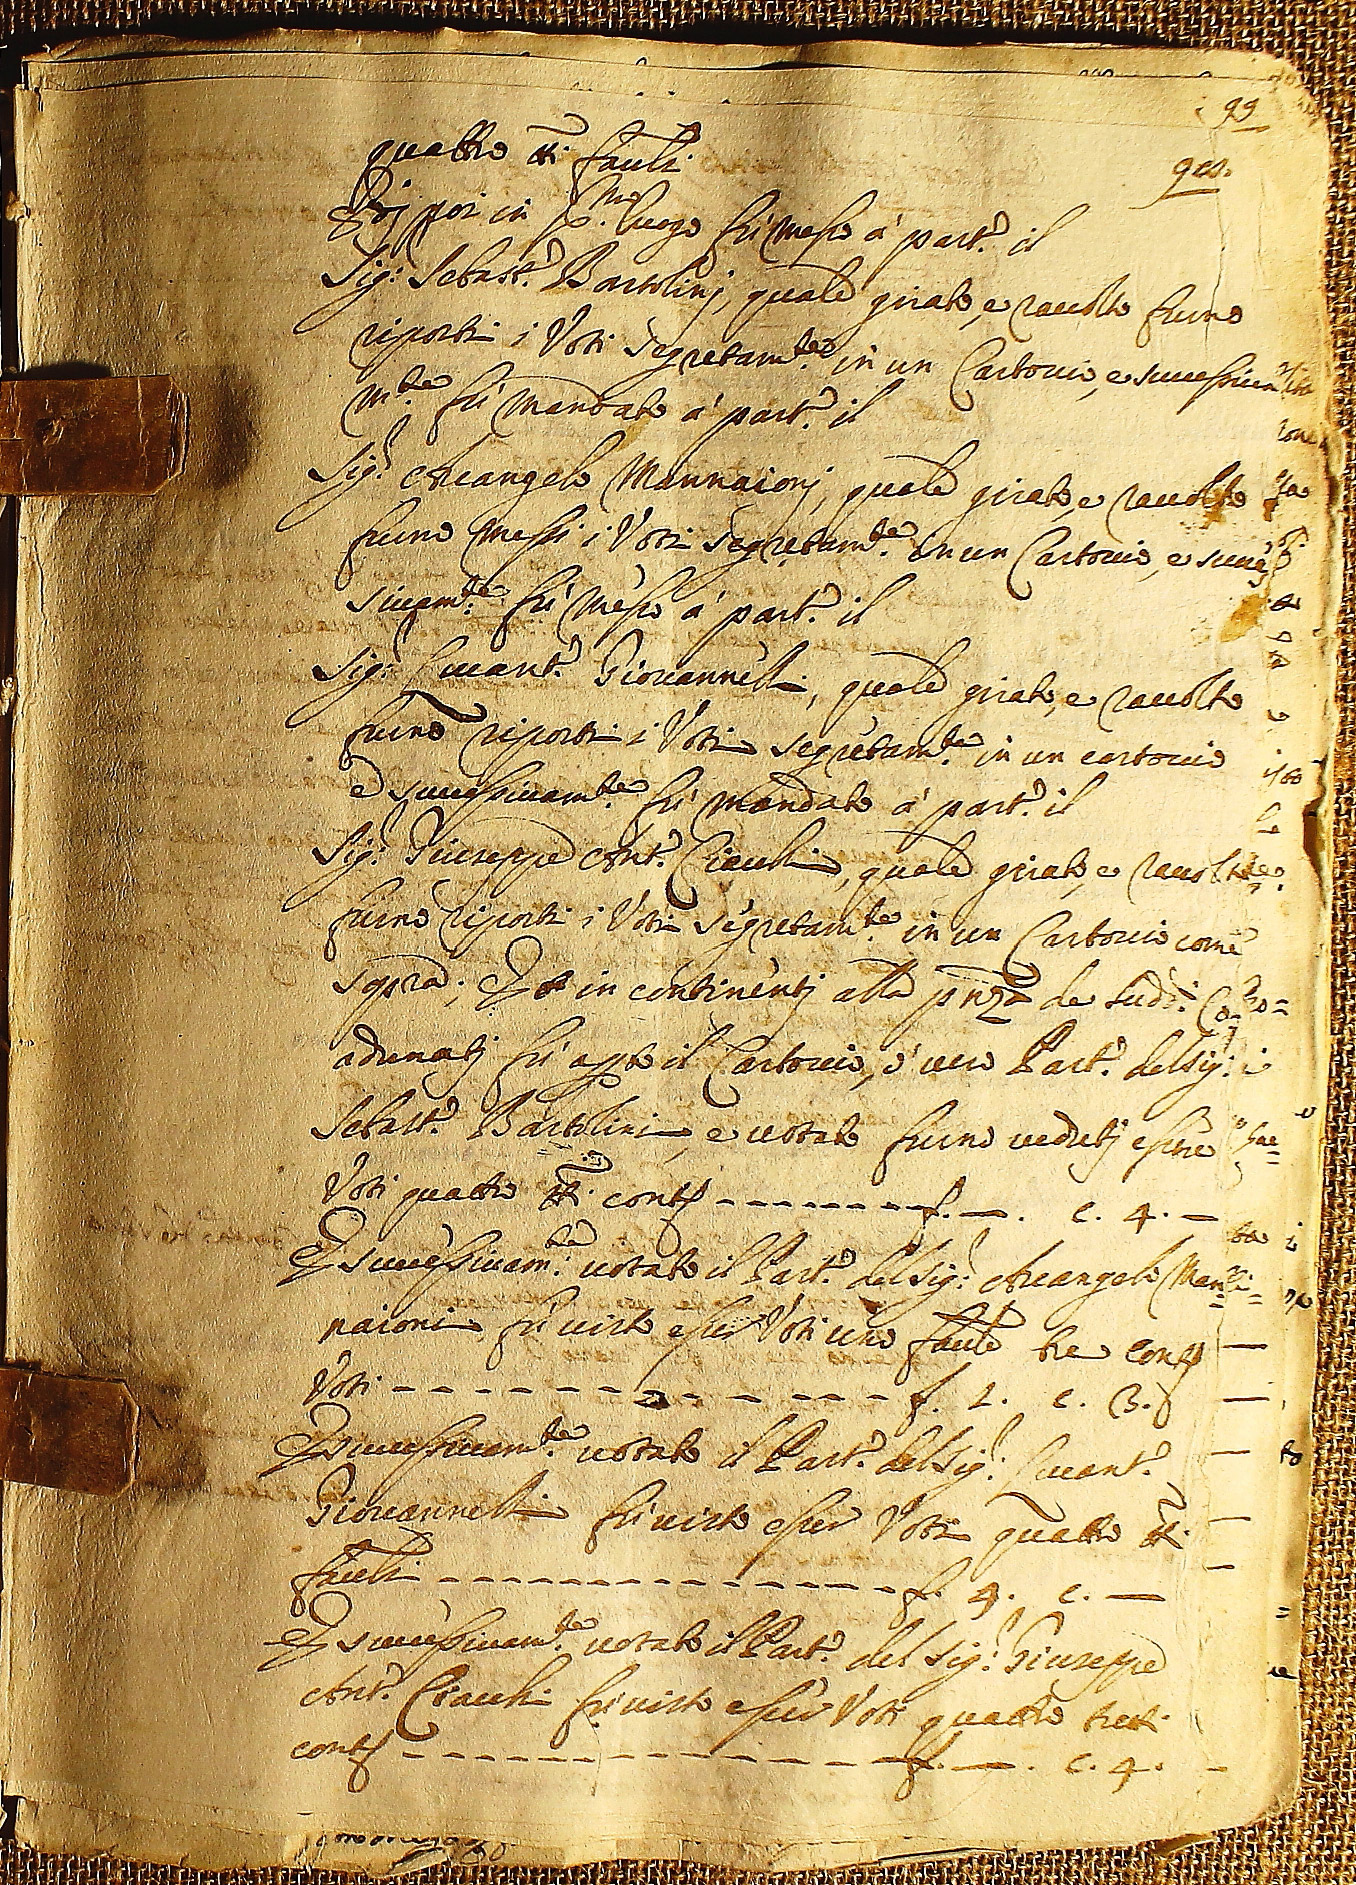 99
quattro tti fauli
E poi in p.mo luogo fù messo à part.o il
Sig: Sebast.o Bartolinj, quale girato, e raccolto furno
riposti i Voti segretam.te in un Cartoccio, e successiva
m.te fù mandato à part.o il
Sig.r Arcangelo Mannaionj, quale girato, e raccolto
furno messi i Voti segretam.te in un Cartoccio, e succes
sivam.te fù messo à part.o il
Sig: Lucant.o Giovannelli, quale girato, e raccolto
furno riposti i Voti segretam.te in un cartoccio
e successivam.te fù mandato à part.o il
Sig: Giuseppe Ant.o Ciacchi, quale girato, e raccolto
furno riposti i Voti segretam.te in un Cartoccio come
sopra; Et in continentj alla pnza de sudd.i Co=
adunatj fù apto il Cartoccio, ò vero Part.o del Sig:
Sebast.o Bartolini, e votato furno vedutj essere
Voti quattro tti contj - - - - - - - - f. —. c. 4. —
E successivam.te votato il Part.o del Sig: Arcangelo Man=
naioni fù visto esser Voti uno faule tre contj
Voti - - - - - - - - - - - - f. 1. c. 3.
E successivam.te votato il Part.o del Sig: Lucant.o
Giovannelli fù visto esser Voti quattro tti
fauli - - - - - - - - - - - - f. 4. c. —
E successivam.te votato il Part.o del Sig: Giuseppe
Ant.o Ciacchi fù visto esser Voti quattro tutti
contj - - - - - - - - - - - - f. —. c. 4.